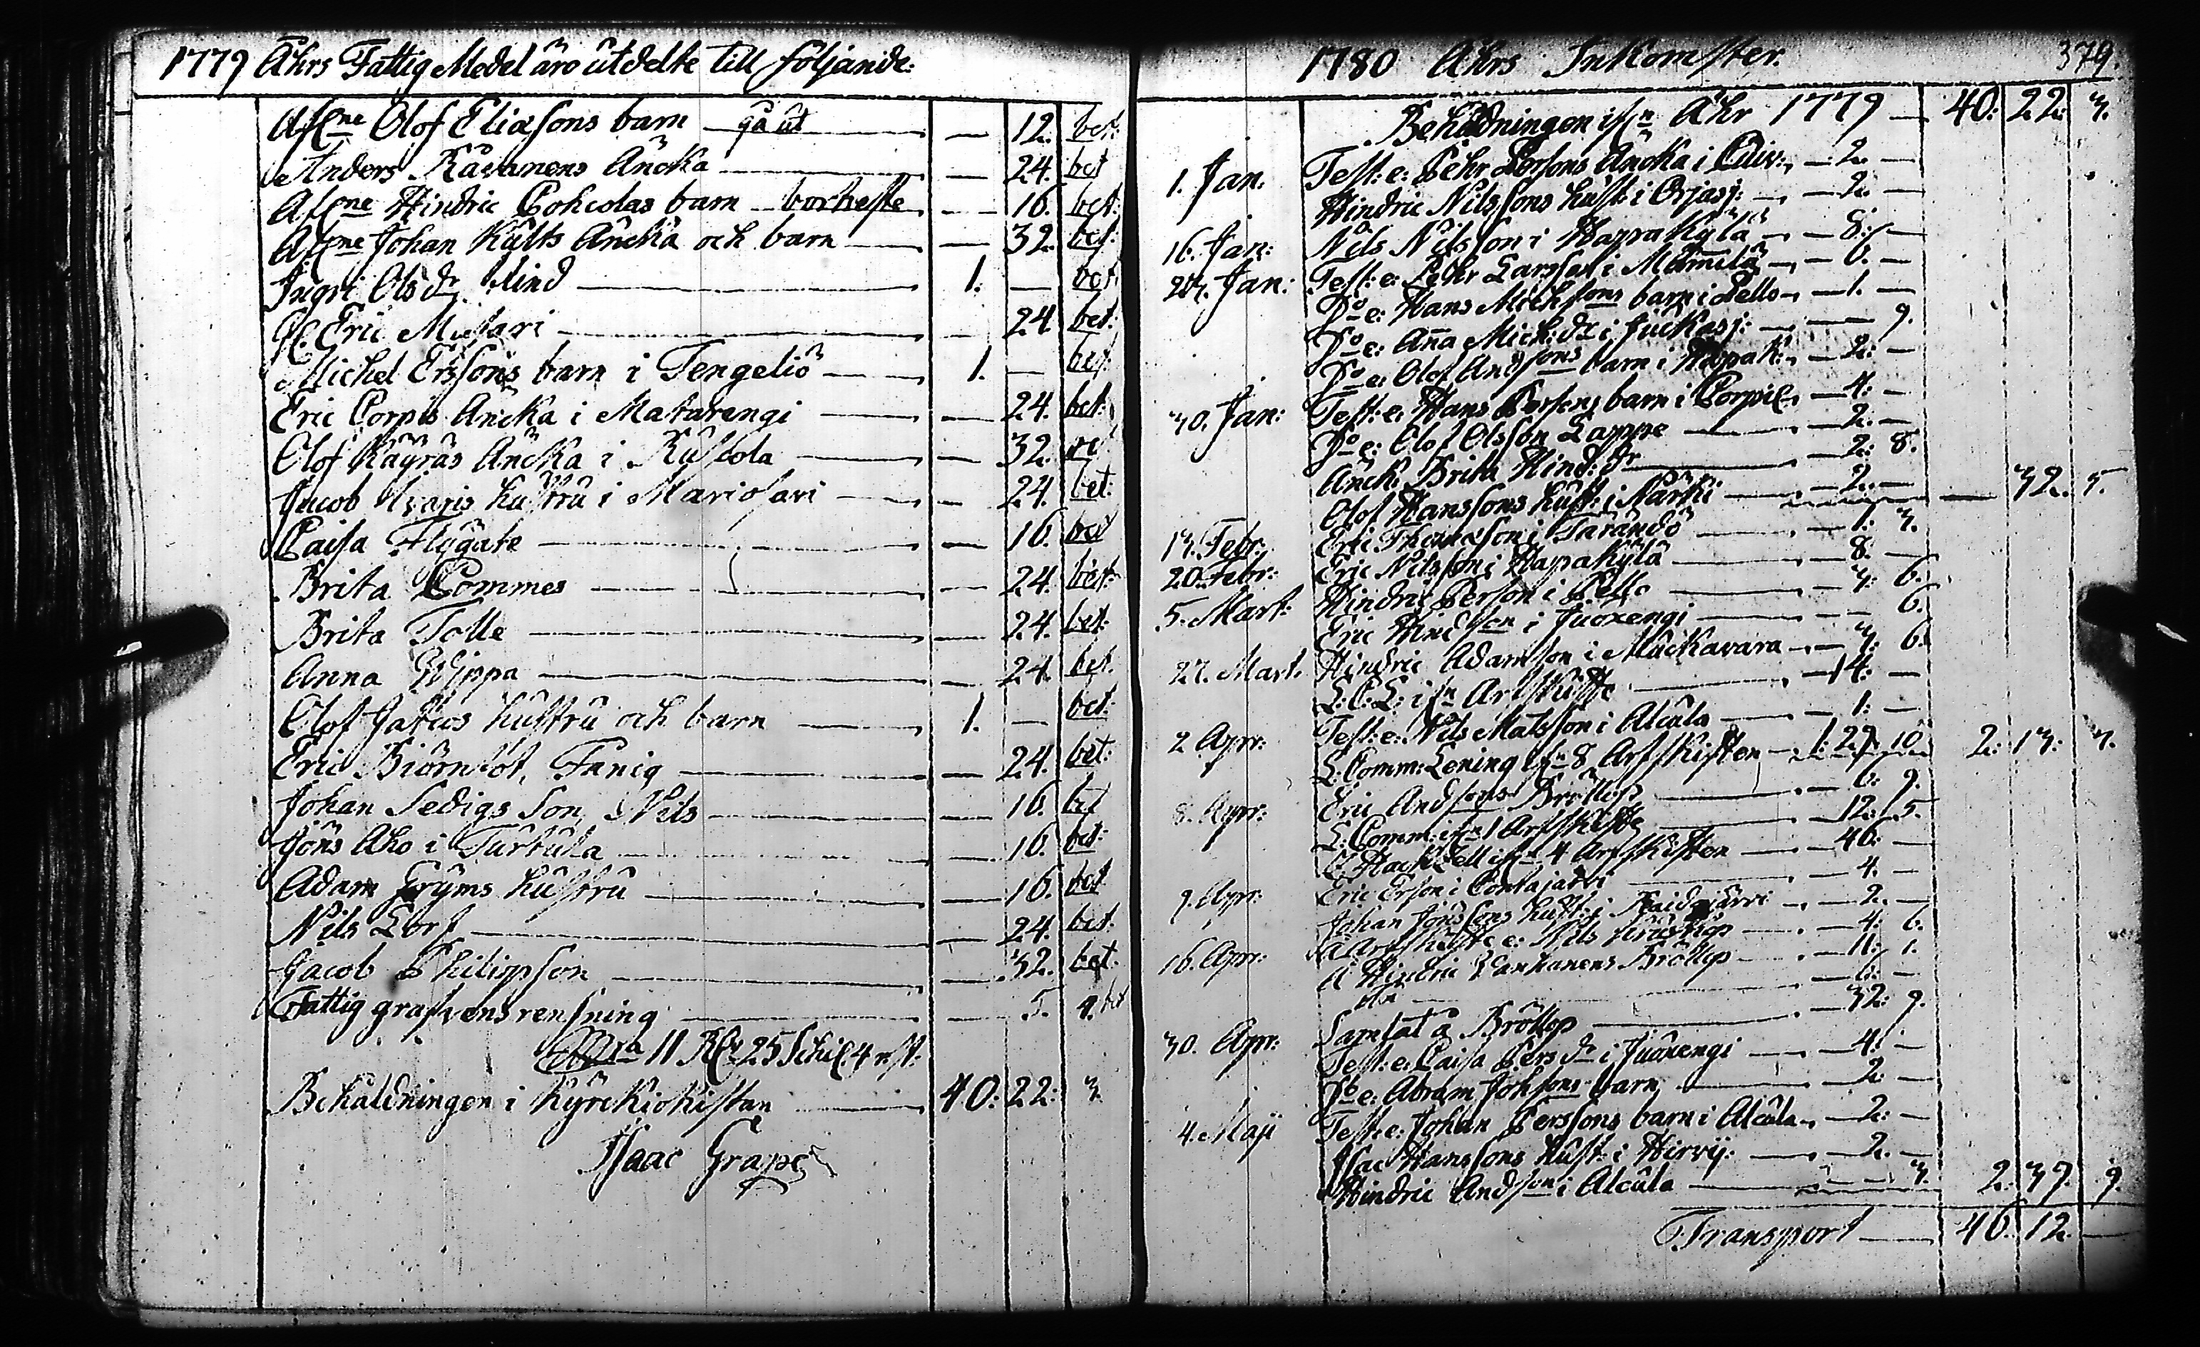 1779 Åhrs Fattig Medel äro utdelte till följande:
Afl:ne Olof Eliæsons barn gå ut — 12. bet:
Anders Råvanens Äncka — 24. bet
Afl:ne Hindric Pohcolas barn — 16. bet:
Afl:ne Johan Kults Äncka och barn — 32. bet:
Ingri Olsdr blind 1. — bet
Gl: Eric Mustari — 24 bet:
Michel Erssons barn i Tengeliö 1. — bet.
Eric Corpis Äncka i Matarengi — 24. bet:
Olof Käyräs Äncka i Ruskola — 32.
Jacob hustru i Mariosari — 24. bet.
Caisa Flygare — 16. bet
Brita Pommes — 24. bet:
Brita Tolle — 24. bet:
Anna Wippa — 24. bet.
Olof Jatcos hustru och barn 1. — bet:
Eric Biörnfot, Fånig — 24. bet:
Johan Sedigs Son, Nils — 16. bet
Jöns Aho i Turtula — 16. bet:
Adam Gryms hustru — 16. bet
Nils Lorf — 24. bet.
Jacob Philippson — 32. bet.
Fattig grafvens rensning — 5. 4. bet
S:ma 11 Rd 25 Schil: 4 rst:
Behåldningen i kyrckiokistan 40: 22: 3
Isaac Grape
1780 Åhrs Inkomster. 379.
Behåldningen ifrn Åhr 1779 — 40: 22: 3.
1. Jan. Test: e: Pehr Persons Äncka i — 2. —
Hindric Nilssons hust: i Orjasj: — 2. —
16. Jan: Nils Nilsson i HapaKylä — 8: —
23. Jan: Test: e: Pehr Larsson i Mämmilä — 6. —
Do e: Hans Michsons barn i Pello — 1. —
Do e: Anna Mich:dr i Juckasj: — — 9.
Do e: Olof Andsons barn i Hapak: — 2: —
30. Jan: Test: e: Hans Persons barn i Corpik — 4: —
Do e: Olof Olsson Lappe — 2. —
Änck: Brita Hind:dr — 2: 8.
Olof Hanssons hust: i Närki — 2. — — 32. 5.
13. Febr: Eric Thomæson i Tarändö — 1: 3.
20. Febr: Eric Nilsson i HapaKylä — 8. —
5. Mart: Hindric Person i Pello — 3: 6.
Eric Hindson i Juoxengi — — 6.
27. Mart. Hindric Adamson i Muckavara — 3: 6.
L: C: L: i fn Arfskifte — 14: —
2 Apr: Test: e: Nils Matsson i Alcula — 1: —
L: Comm: Lening ifrn 8 Arfskiften — 1: 27. 10. 2: 13: 3.
8. Apr: Eric Andsons Bröllop — 6: 9.
L: Comm: ifrn 1 Arfskifte — 12: 5.
C: Hackzell ifrn 4 Arfskiften — 40: —
9. Apr: Eric Erson i Contajärvi — 4. —
Johan Jönssons hust: i Raidajärvi — 2. —
A Arfskifte e: Nils — 4: 6.
16. Apr: A Hindric Vanhanens Bröllop — 11: 1.
— 6: —
30. Apr: Samlat å Bröllop — 32: 9.
Test: e: Caisa Persdr i Juoxengi — 4: —
Do e: Abram Johsons barn — 2 —
4. Maji Test: e: Johan Perssons barn i Alcula — 2: —
Isac Hanssons hust: i Hirvij: — 2. —
Hindric Andson i Alcula — 3. 2: 37. 9.
Transport — 46. 12. —